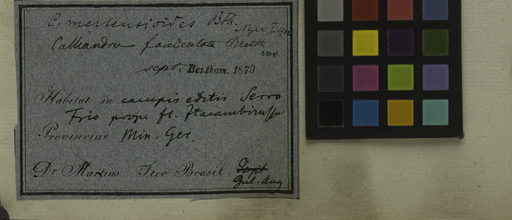 C. mertensioides B
Calliandra fasciculata Benth.
var
sept. Bentham. 1873
Habitat in campis editis Serro
Frio prope fl. Itacambirussu
Provinciae Min. Ger.
Dr. Martius Iter Brasil. Sept
Jul-Aug